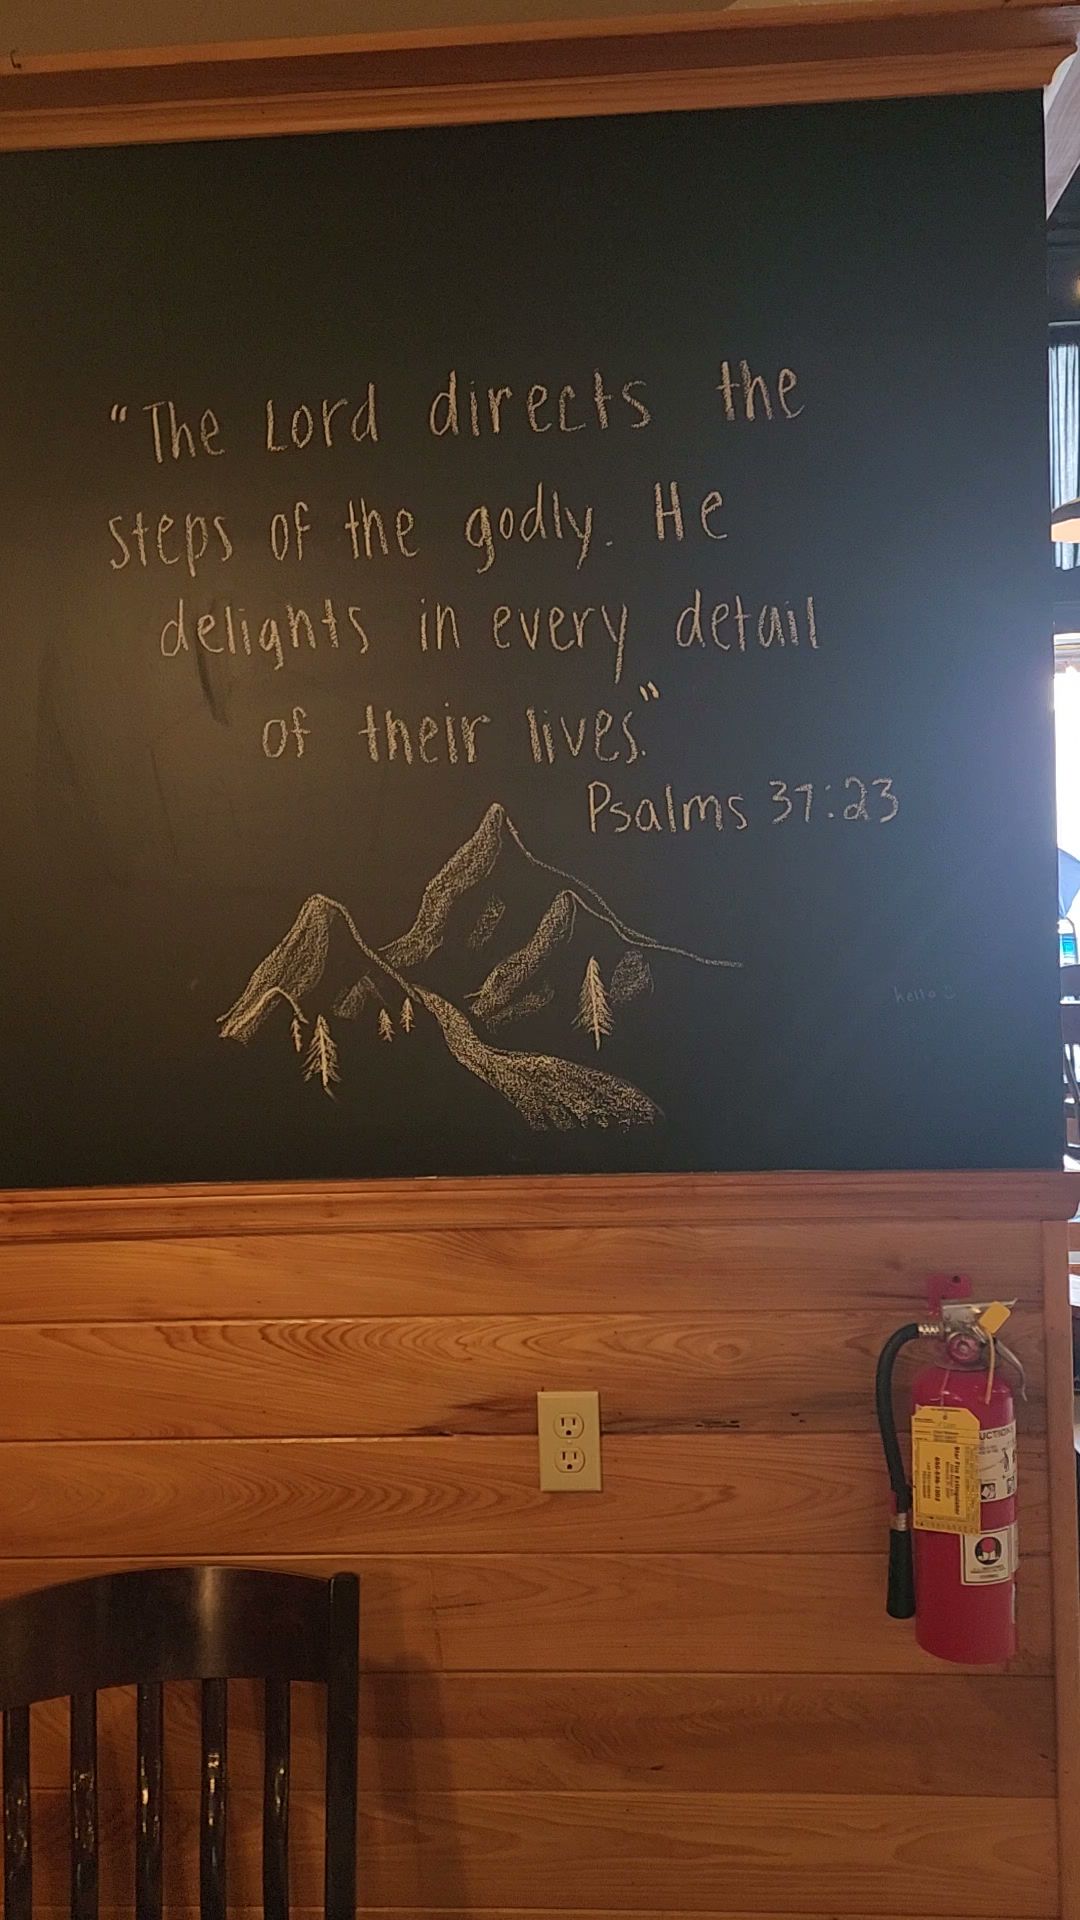 "The Lord directs the
steps of the godly. He
delights in every detail
of their lives."
Psalms 37:23
hello
Star Fire Extinguisher